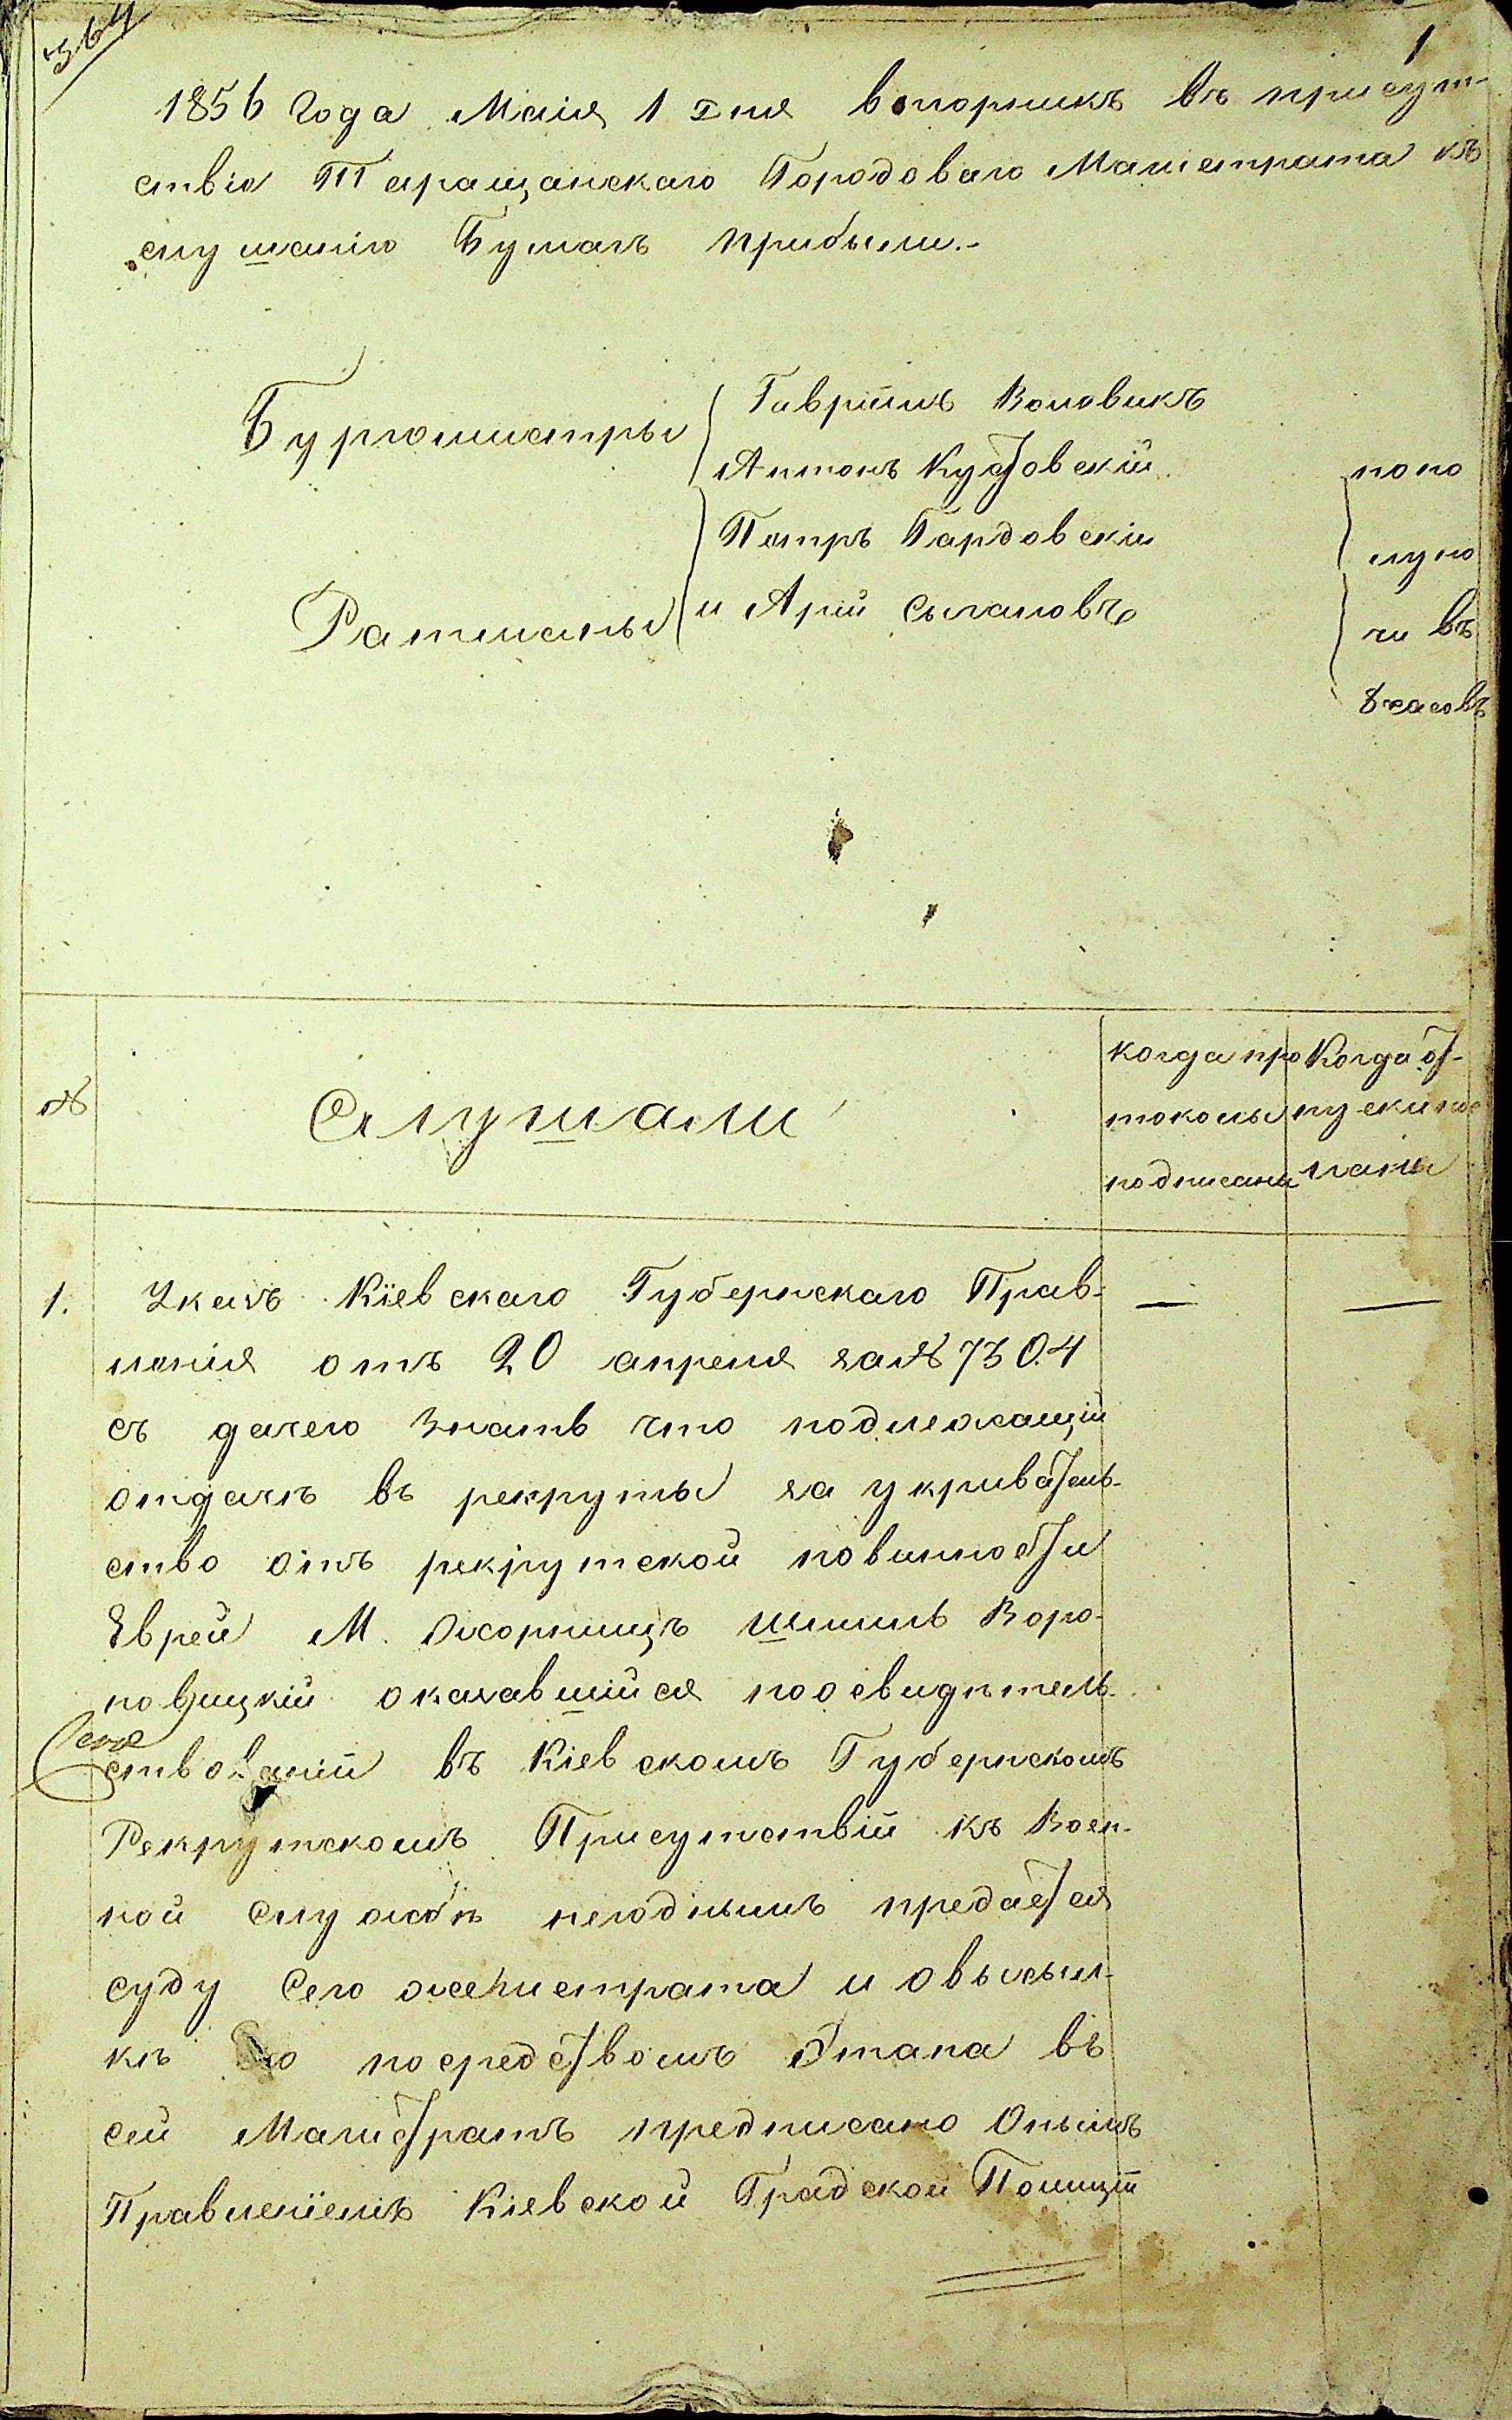 364
1
1856 Года Маія 1 дня вторникъ въ присут-
ствіи Таращанскаго Городоваго Магистрата къ
слушанію Бумагъ прибыли.-
Бургомистры
Гавріилъ Воловикъ
Антонъ Кустовскій
Ратманы
Петръ Гардовскій
и Арій Сыгаловъ
попо
луно
чи въ
8 часовъ
№
Слушали
когда про
токолы
подписаны
Когда от-
пуски по
сланы
1. Указъ Кіевскаго Губернскаго Прав-
ленія отъ 20 апреля за № 7304
съ дачею знать что подлежащій
отдачѣ въ рекруты за укриватель-
ство отъ рекрутской повинности
Еврей М. Жорнищъ Шмиль Воро-
новицкій оказавшійся по освидѣтель-
ствованіи въ Кіевскомъ Губернскомъ
Рекрутскомъ Присутствіи къ Воен-
ной службѣ негоднымъ предается
суду Сего же Магистрата и о высыл-
кѣ его посредствомъ Этапа въ
сей Магистратъ предписано Онымъ
Правленіемъ Кіевской Градской Полиціи